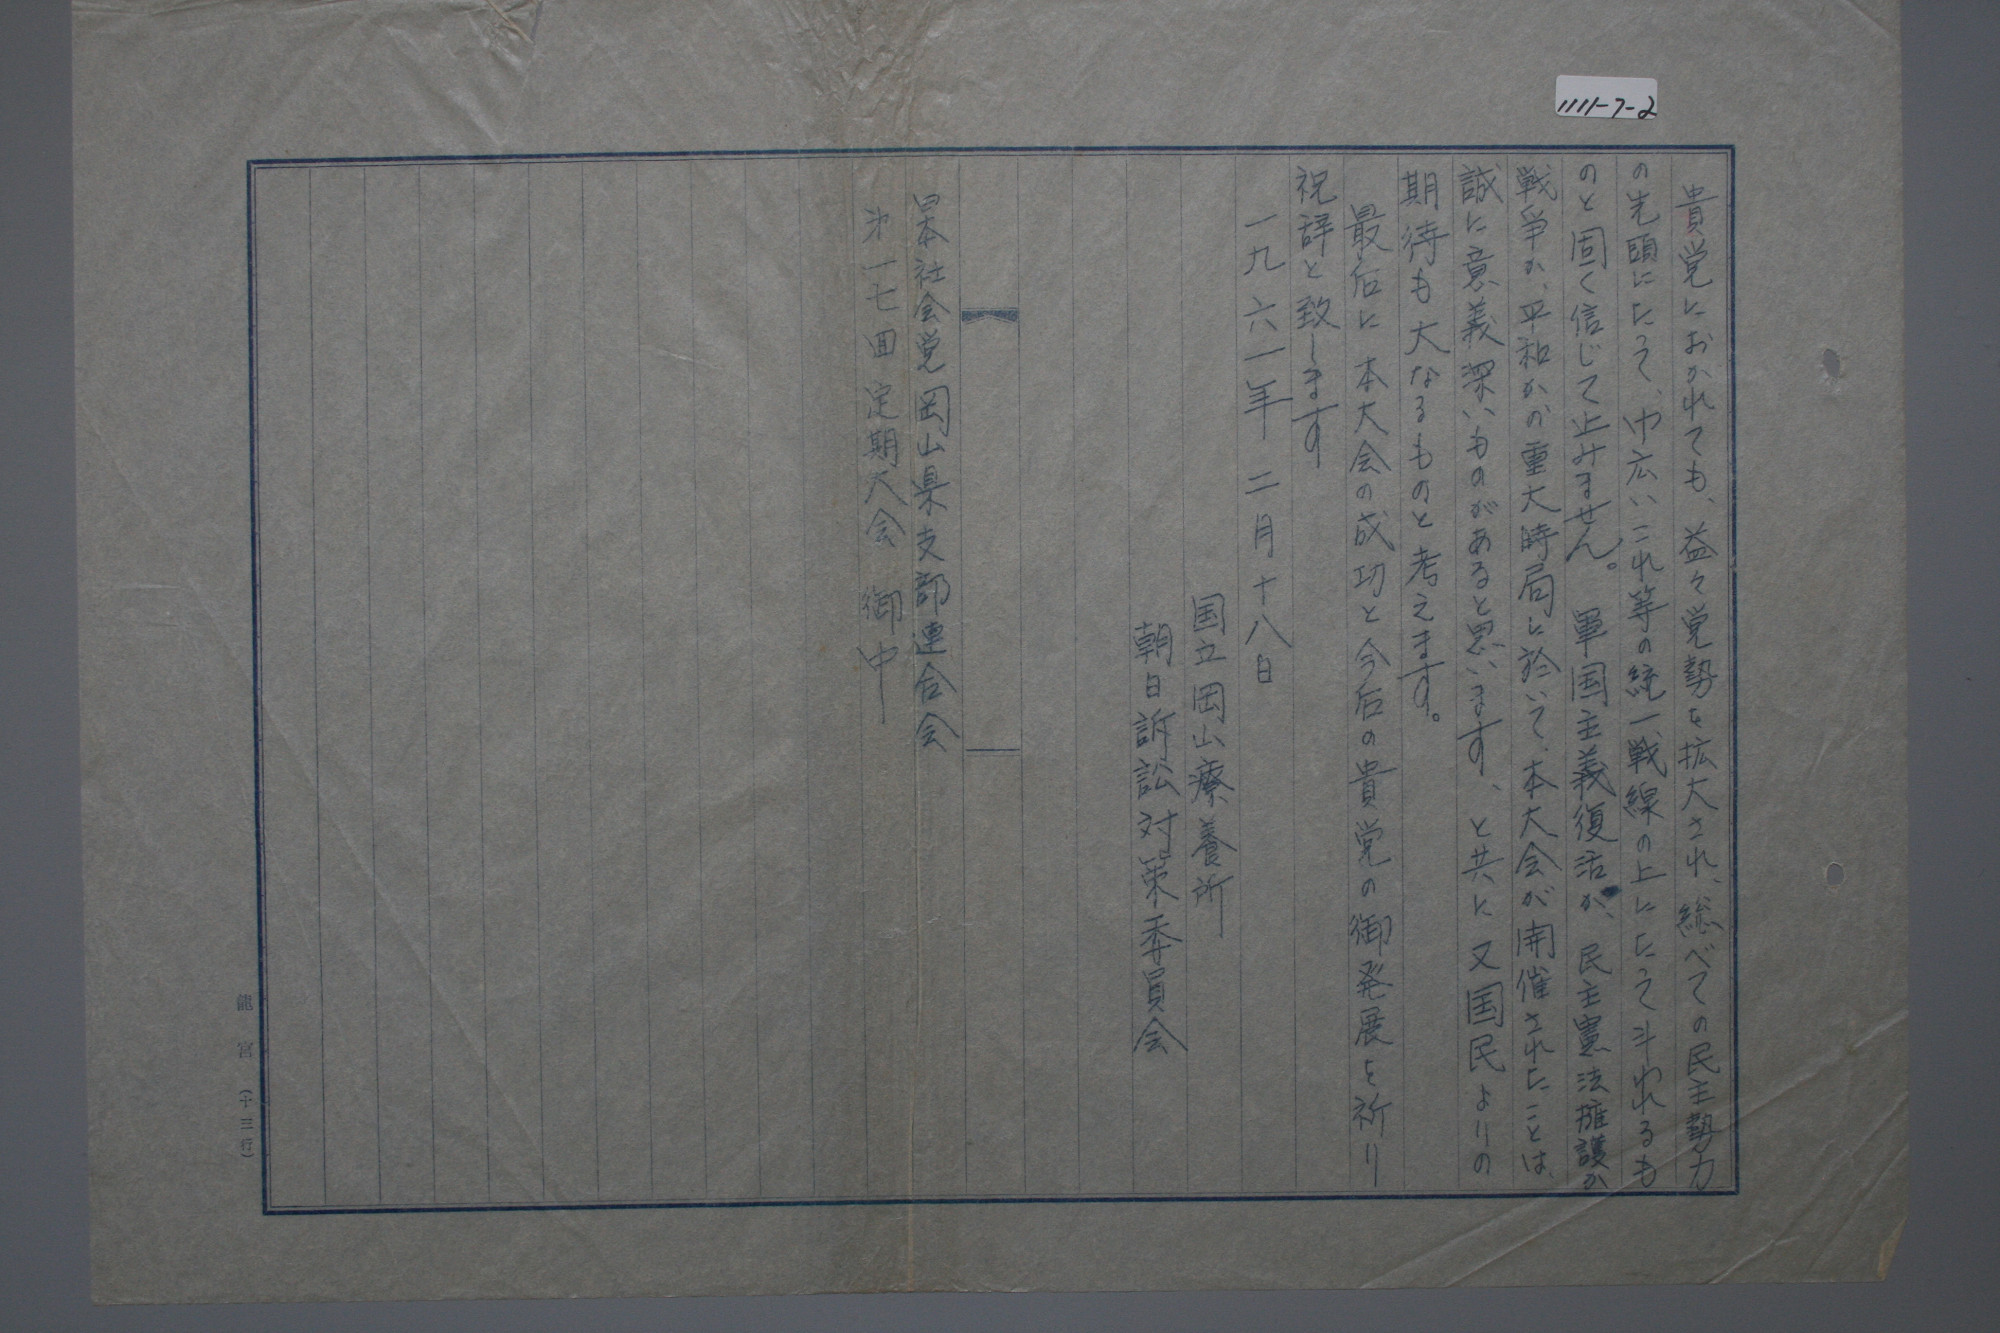 1111-7-2
貴党におかれても、益々党勢を拡大され、総べての民主勢力
の先頭にたって、巾広いこれ等の統一戦線の上にたって斗われるも
のと固く信じて止みません。 軍国主義復活か、民主憲法擁護か
戦争か、平和かの重大時局に於いて、本大会が開催されたことは、
誠に意義深いものがあると思います、と共に又国民よりの
期待も大なるものと考えます。
最后に本大会の成功と今后の貴党の御発展を祈り
祝辞と致します
一九六一年 二月十八日
国立岡山療養所
朝日訴訟対策委員会
日本社会党岡山県支部連合会
第一七回定期大会 御中
龍宮(十三行)